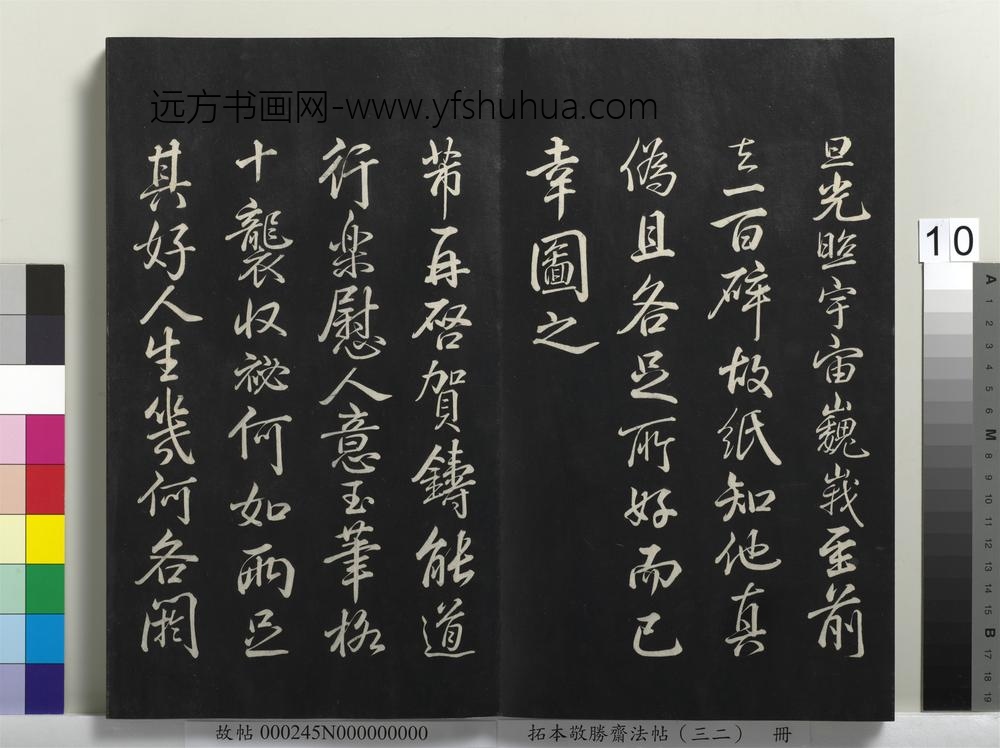 远方书画网-www.yfshuhua.com
旦光照宇宙巍峩至前
去一百碎故纸知他真
偽且各足所好而已
幸圖之
芾再啓賀鑄能道
行樂慰人意玉筆格
十襲收祕何如兩足
其好人生幾何各閼
10
A 1 2 3 4 5 6 M 8 9 10 11 12 13 14 15 B 17 18 19
故帖 000245N000000000
拓本敬勝齋法帖(三二) 冊